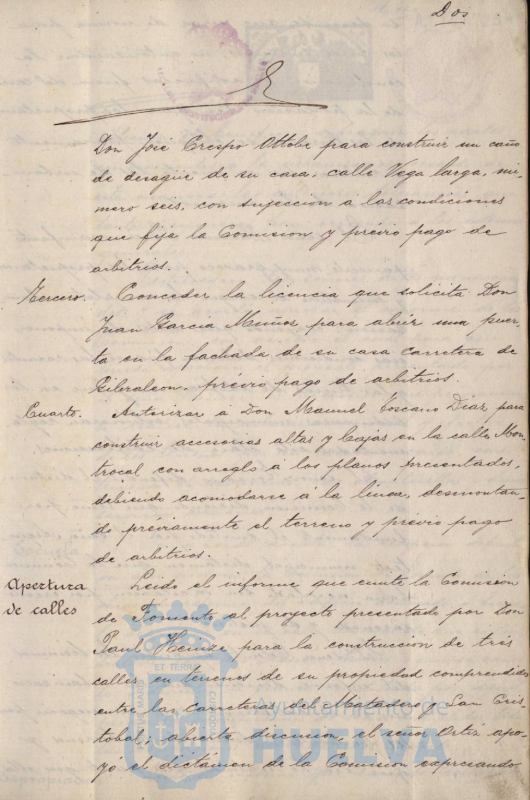 Dos
Don José Crespo Ottobe para construir un caño
de desagüe de su casa, calle Vega larga, nú-
mero seis, con sujeccion á las condiciones
que fija la Comision y prévio pago de
arbitrios.
Tercero. Conceder la licencia que solicita Don
Juan Garcia Muñoz para abrir una puer-
ta en la fachada de su casa carretera de
Gibraleon, prévio pago de arbitrios.
Cuarto. Autorizar á Don Manuel Toscano Diaz para
construir accesorias altas y bajas en la calle Mon-
trocal con arreglo á los planos presentados,
debiendo acomodarse á la línea, desmontan-
do préviamente el terreno y prévio pago
de arbitrios.
Apertura de calles
Leido el informe que emite la Comision
de Fomento al proyecto presentado por Don
Paul para la construccion de tres
calles en terrenos de su propiedad comprendidos
entre las carreteras del Matadero y San Cris-
tobal; abierta discusion, el señor Ortiz apo-
yó el dictámen de la Comision expresando
Ayuntamiento de
HUELVA